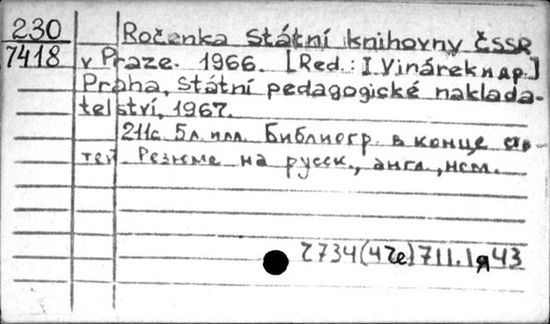 230 Ročenka Státní knihovny ČSSR
7418 v Praze. 1966. [Red.: I. Vinárek и др.]
Praha, Státní pedagogické naklada-
telství, 1967.
211с. 5л. илл. Библиогр. в конце ста-
тей Резюме на русск., англ., нем.
2734(42е)711.1я43